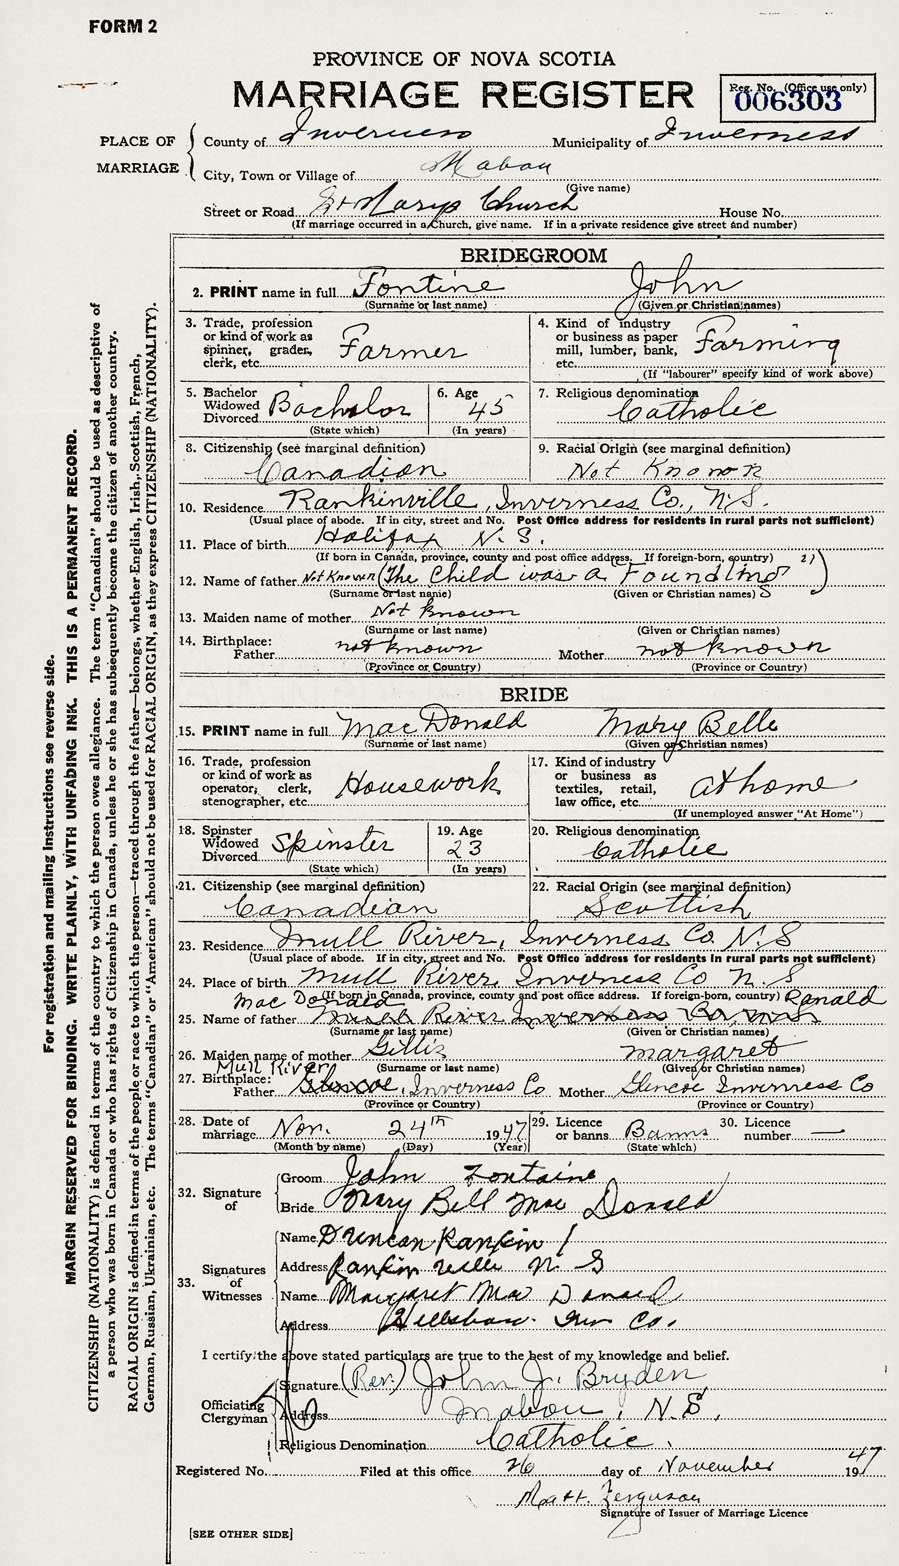 FORM 2
PROVINCE OF NOVA SCOTIA
MARRIAGE REGISTER
Reg. No. (Office use only)
006303
PLACE OF MARRIAGE
County of Inverness Municipality of Inverness
City, Town or Village of Mabou
(Give name)
Street or Road St Marys Church House No.
(If marriage occurred in a Church, give name. If in a private residence give street and number)
BRIDEGROOM
2. PRINT name in full Fontine John
(Surname or last name) (Given or Christian names)
3. Trade, profession or kind of work as spinner, grader, clerk, etc. Farmer
4. Kind of industry or business as paper mill, lumber, bank, etc. Farming
(If "labourer" specify kind of work above)
5. Bachelor Widowed Divorced Bachelor
(State which)
6. Age 45
(In years)
7. Religious denomination Catholic
8. Citizenship (see marginal definition) Canadian
9. Racial Origin (see marginal definition) Not Known
10. Residence Rankinville, Inverness Co., N.S.
(Usual place of abode. If in city, street and No. Post Office address for residents in rural parts not sufficient)
11. Place of birth Halifax N. S.
(If born in Canada, province, county and post office address. If foreign-born, country)
12. Name of father Not Known (The Child was a Foundling)
(Surname or last name) (Given or Christian names)
13. Maiden name of mother Not known
(Surname or last name) (Given or Christian names)
14. Birthplace: Father not known Mother not known
(Province or Country) (Province or Country)
BRIDE
15. PRINT name in full MacDonald Mary Belle
(Surname or last name) (Given or Christian names)
16. Trade, profession or kind of work as operator, clerk, stenographer, etc. Housework
17. Kind of industry or business as textiles, retail, law office, etc. at home
(If unemployed answer "At Home")
18. Spinster Widowed Divorced Spinster
(State which)
19. Age 23
(In years)
20. Religious denomination Catholic
21. Citizenship (see marginal definition) Canadian
22. Racial Origin (see marginal definition) Scottish
23. Residence Mull River, Inverness Co. N.S
(Usual place of abode. If in city, street and No. Post Office address for residents in rural parts not sufficient)
24. Place of birth Mull River, Inverness Co N.S
(If born in Canada, province, county and post office address. If foreign-born, country)
Mac Donald Ranald
25. Name of father Mull River Inverness Co,
(Surname or last name) (Given or Christian names)
26. Maiden name of mother Gillis Margaret
(Surname or last name) (Given or Christian names)
Mull River
27. Birthplace: Father Glencoe, Inverness Co Mother Glencoe Inverness Co
(Province or Country) (Province or Country)
28. Date of marriage Nov. 24th 1947
(Month by name) (Day) (Year)
29. Licence or banns Banns
(State which)
30. Licence number —
32. Signature of
Groom John Fontaine
Bride Mary Bell Mac Donald
33. Signatures of Witnesses
Name Duncan Rankin
Address Rankin ville N S
Name Margaret Mac Donald
Address Hillsboro. Inv Co.
I certify the above stated particulars are true to the best of my knowledge and belief.
Officiating Clergyman
Signature (Rev.) John J. Bryden
Address Mabou, N.S,
Religious Denomination Catholic.
Registered No. Filed at this office 26 day of November 1947
Matt. Ferguson
Signature of Issuer of Marriage Licence
[SEE OTHER SIDE]
For registration and mailing instructions see reverse side.
MARGIN RESERVED FOR BINDING. WRITE PLAINLY, WITH UNFADING INK. THIS IS A PERMANENT RECORD.
CITIZENSHIP (NATIONALITY) is defined in terms of the country to which the person owes allegiance. The term "Canadian" should be used as descriptive of
a person who was born in Canada or who has rights of Citizenship in Canada, unless he or she has subsequently become the citizen of another country.
RACIAL ORIGIN is defined in terms of the people or race to which the person—traced through the father—belongs, whether English, Irish, Scottish, French,
German, Russian, Ukrainian, etc. The terms "Canadian" or "American" should not be used for RACIAL ORIGIN, as they express CITIZENSHIP (NATIONALITY).